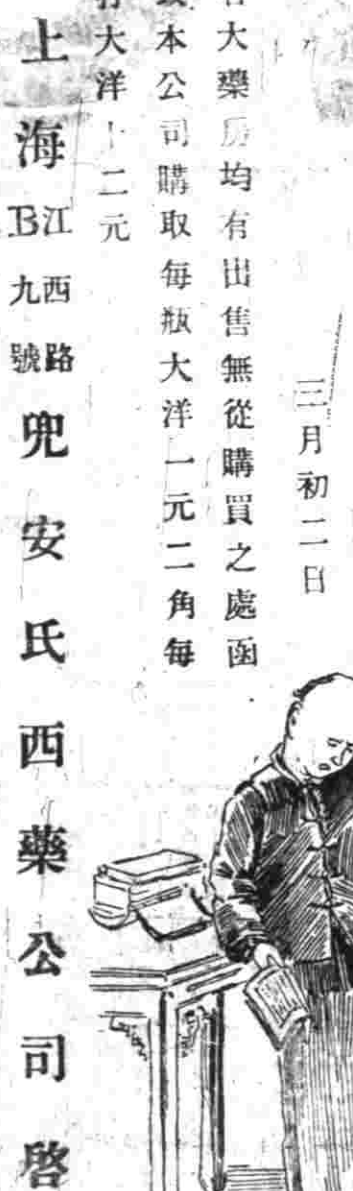 三月初二日
大藥房均有出售無從購買之處函
本公司購取每瓶大洋一元二角每
大洋十二元
上海江西路B九號兜安氏西藥公司啓